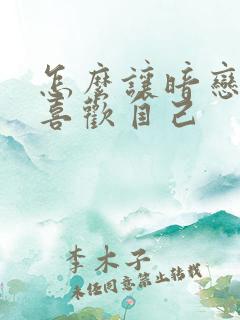 怎麼讓暗戀
喜歡自己
李木子
未經同意禁止轉載